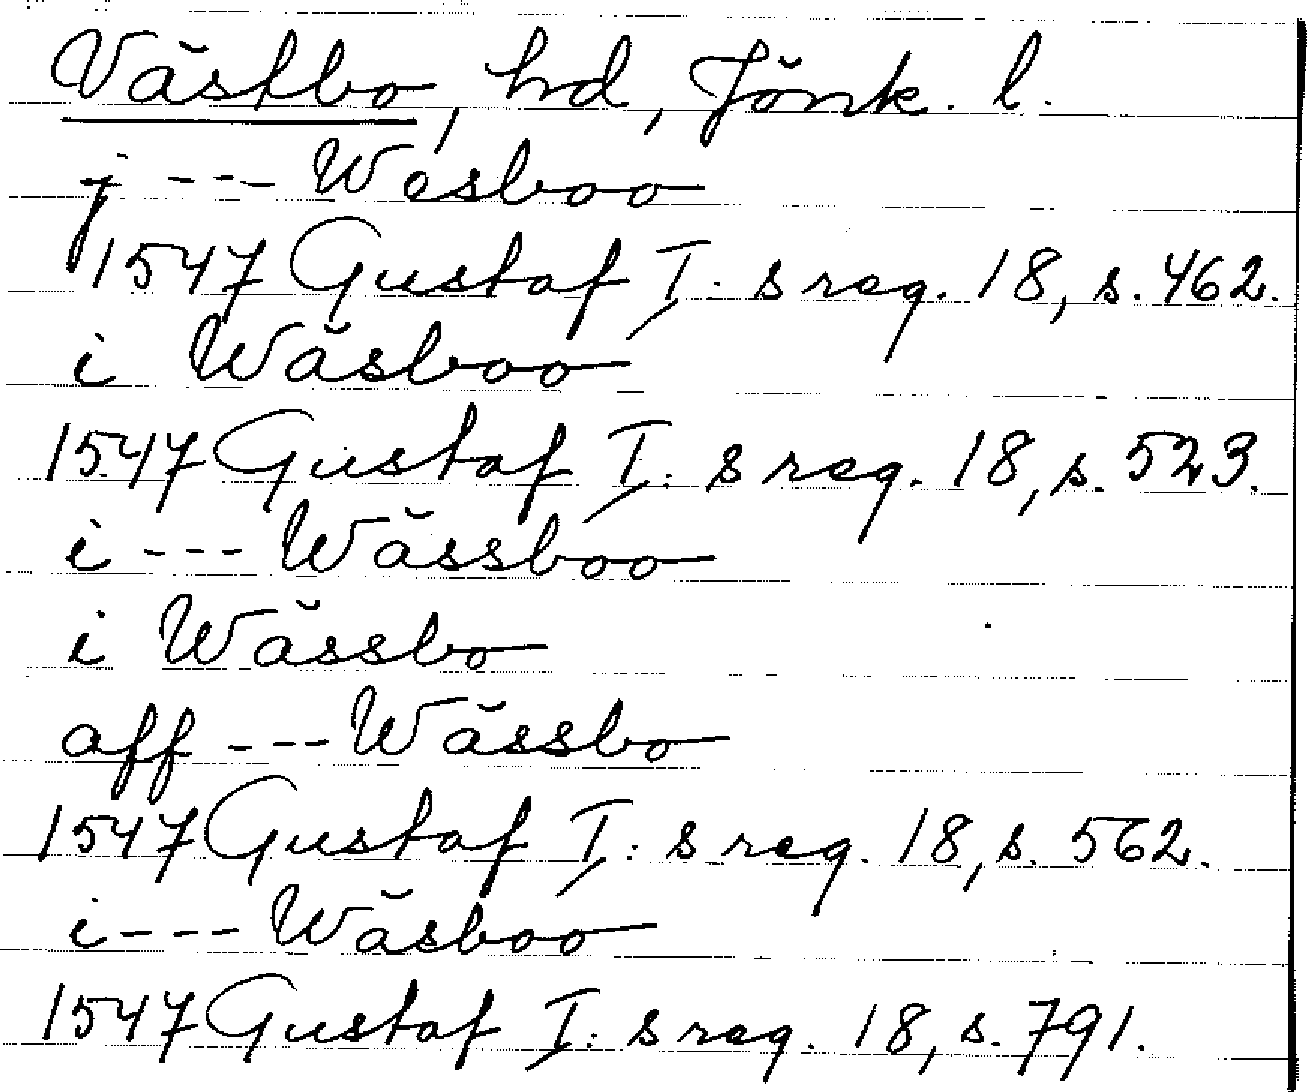 Västbo, hd, Jönk. l.
j --- Wesboo
1547 Gustaf I: s reg. 18, s. 462.
i Wäsboo
1547 Gustaf I: s reg. 18, s. 523.
i --- Wässboo
i Wässbo
aff --- Wässbo
1547 Gustaf I: s reg. 18, s. 562.
i --- Wäsboo
1547 Gustaf I: s reg. 18, s. 791.